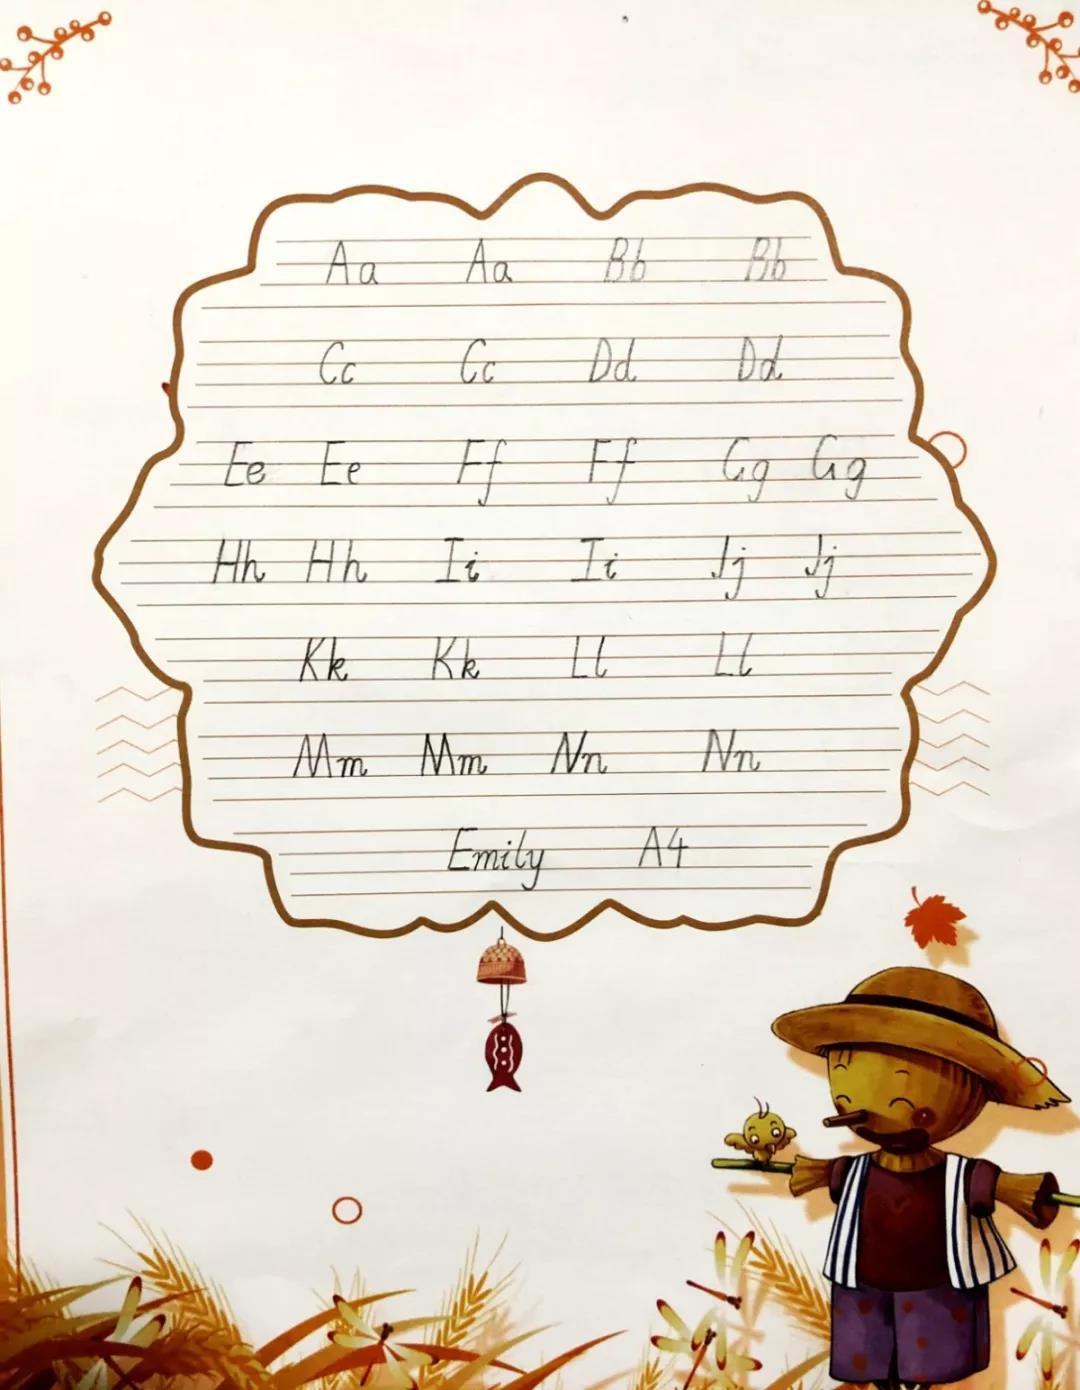 Aa Aa Bb Bb
Cc Cc Dd Dd
Ee Ee Ff Ff Gg Gg
Hh Hh Ii Ii Jj Jj
Kk Kk Ll Ll
Mm Mm Nn Nn
Emily A4